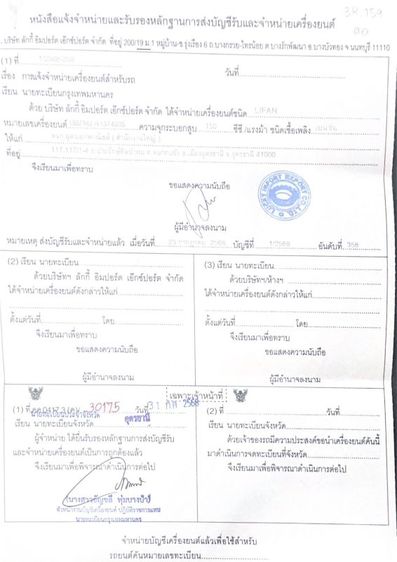 3ร.159
หนังสือแจ้งจำหน่ายและรับรองหลักฐานการส่งบัญชีรับและจำหน่ายเครื่องยนต์
บริษัท ลักกี้ อิมปอร์ต เอ็กซ์ปอร์ต จำกัด ที่อยู่ 200/19 ม.1 หมู่บ้าน-ซ.รุ่งเรือง 6 ถ.บางกรวย-ไทรน้อย ต.บางรักพัฒนา อ.บางบัวทอง จ.นนทบุรี 11110
(1) ที่
วันที่
เรื่อง การแจ้งจำหน่ายเครื่องยนต์สำหรับรถ
เรียน นายทะเบียนกรุงเทพมหานคร
ด้วย บริษัท ลักกี้ อิมปอร์ต เอ็กซ์ปอร์ต จำกัด ได้จำหน่ายเครื่องยนต์ชนิด LIFAN
หมายเลขเครื่องยนต์ ความจุกระบอกสูบ 110 ซีซี /แรงม้า ชนิดเชื้อเพลิง เบนซิน
ให้แก่
ที่อยู่ 41000
จึงเรียนมาเพื่อทราบ
ขอแสดงความนับถือ
LUCKY IMPORT EXPORT CO.,LTD.
ผู้มีอำนาจลงนาม
หมายเหตุ ส่งบัญชีรับและจำหน่ายแล้ว เมื่อวันที่ บัญชีที่ 1/2568 อันดับที่ 358
(2) เรียน นายทะเบียน
ด้วยบริษัทฯ ลักกี้ อิมปอร์ต เอ็กซ์ปอร์ต จำกัด
ได้จำหน่ายเครื่องยนต์ดังกล่าวให้แก่
ตั้งแต่วันที่ โดย
จึงเรียนมาเพื่อทราบ
ขอแสดงความนับถือ
ผู้มีอำนาจลงนาม
(3) เรียน นายทะเบียน
ด้วยบริษัทฯ/ห้างฯ
ได้จำหน่ายเครื่องยนต์ดังกล่าวให้แก่
ตั้งแต่วันที่ โดย
จึงเรียนมาเพื่อทราบ
ขอแสดงความนับถือ
ผู้มีอำนาจลงนาม
เฉพาะเจ้าหน้าที่
(1) ที่ 30175 วันที่ 31 2568
เรียน นายทะเบียนจังหวัด อุดรธานี
ผู้จำหน่าย ได้ยื่นรับรองหลักฐานการส่งบัญชีรับ
และจำหน่ายเครื่องยนต์เป็นการถูกต้องแล้ว
จึงเรียนมาเพื่อพิจารณาดำเนินการต่อไป
นายทะเบียนกรุงเทพมหานคร
(2) ที่ วันที่
เรียน นายทะเบียนจังหวัด
ด้วยเจ้าของรถมีความประสงค์ขอนำเครื่องยนต์คันนี้
มาดำเนินการจดทะเบียนที่จังหวัด
จึงเรียนมาเพื่อพิจารณาดำเนินการต่อไป
จำหน่ายบัญชีเครื่องยนต์แล้วเพื่อใช้สำหรับ
รถยนต์คันหมายเลขทะเบียน